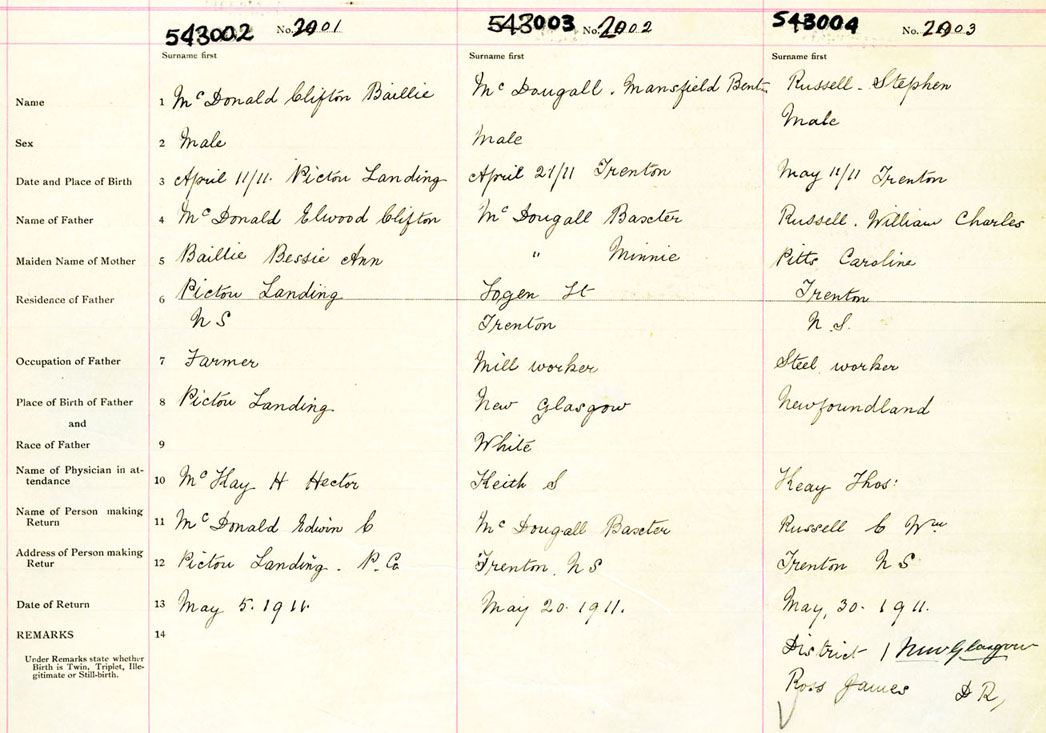 543002 No. 2001
543003 No. 2002
543004 No. 2003
Surname first
Surname first
Surname first
Name 1 McDonald Clifton Baillie
McDougall. Mansfield
Russell. Stephen
Sex 2 Male
Male
Male
Date and Place of Birth 3 April 11/11. Pictou Landing
April 21/11 Trenton
May 11/11 Trenton
Name of Father 4 McDonald Elwood Clifton
McDougall Baxter
Russell. William Charles
Maiden Name of Mother 5 Baillie Bessie Ann
" Minnie
Pitts Caroline
Residence of Father 6 Pictou Landing
N S
Logen St
Trenton
Trenton
N.S.
Occupation of Father 7 Farmer
Mill worker
Steel worker
Place of Birth of Father 8 Pictou Landing
New Glasgow
Newfoundland
and
Race of Father 9
White
Name of Physician in at-
tendance 10 McKay H Hector
Keith S
Keay Thos:
Name of Person making
Return 11 McDonald Edwin C
McDougall Baxter
Russell C Wm
Address of Person making
Retur 12 Pictou Landing. P. Co
Trenton. N S
Trenton N S
Date of Return 13 May 5. 1911.
May 20. 1911.
May, 30. 1911.
REMARKS 14
Under Remarks state whether
Birth is Twin, Triplet, Ille-
gitimate or Still-birth.
District 1 New Glasgow
Ross James D R,